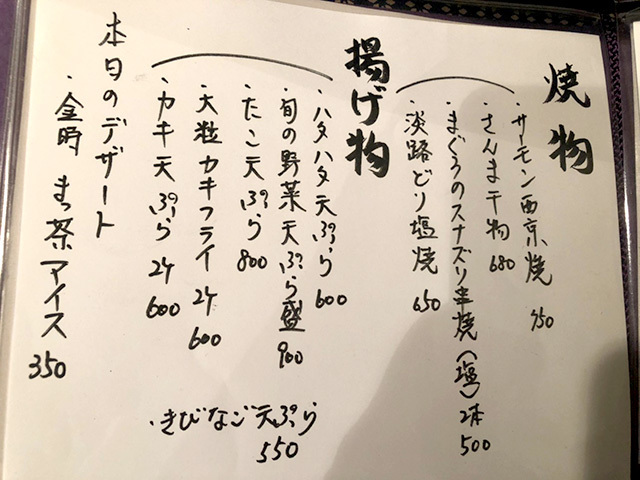 焼物
・サーモン西京焼 750
・さんま干物 680
・まぐろのスナズリ串焼(塩)2本 500
・淡路どり塩焼 650
揚げ物
・ハタハタ天ぷら 600
・旬の野菜天ぷら盛 900
・たこ天ぷら 800
・大粒カキフライ 2ケ 600
・カキ天ぷら 2ケ 600
・きびなご天ぷら 550
本日のデザート
・金時 まっ茶アイス 350